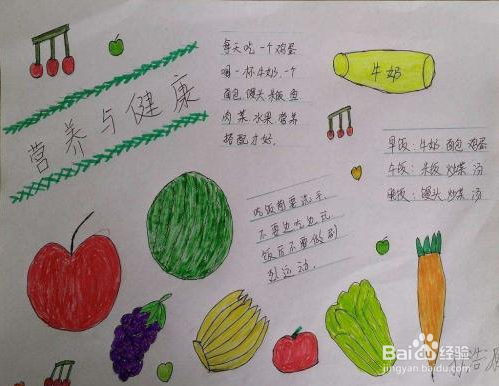 营养与健康
每天吃一个鸡蛋
喝一杯牛奶,一个
面包 馒头 米饭 鱼
肉 菜 水果 营养
搭配才好.
牛奶
早饭:牛奶 面包 鸡蛋
午饭:米饭 炒菜 汤
晚饭:馒头 炒菜 汤
吃饭前要洗手,
不要边吃边玩
饭后不要做剧
烈运动.
Baidu经验
jingyan.baidu.com